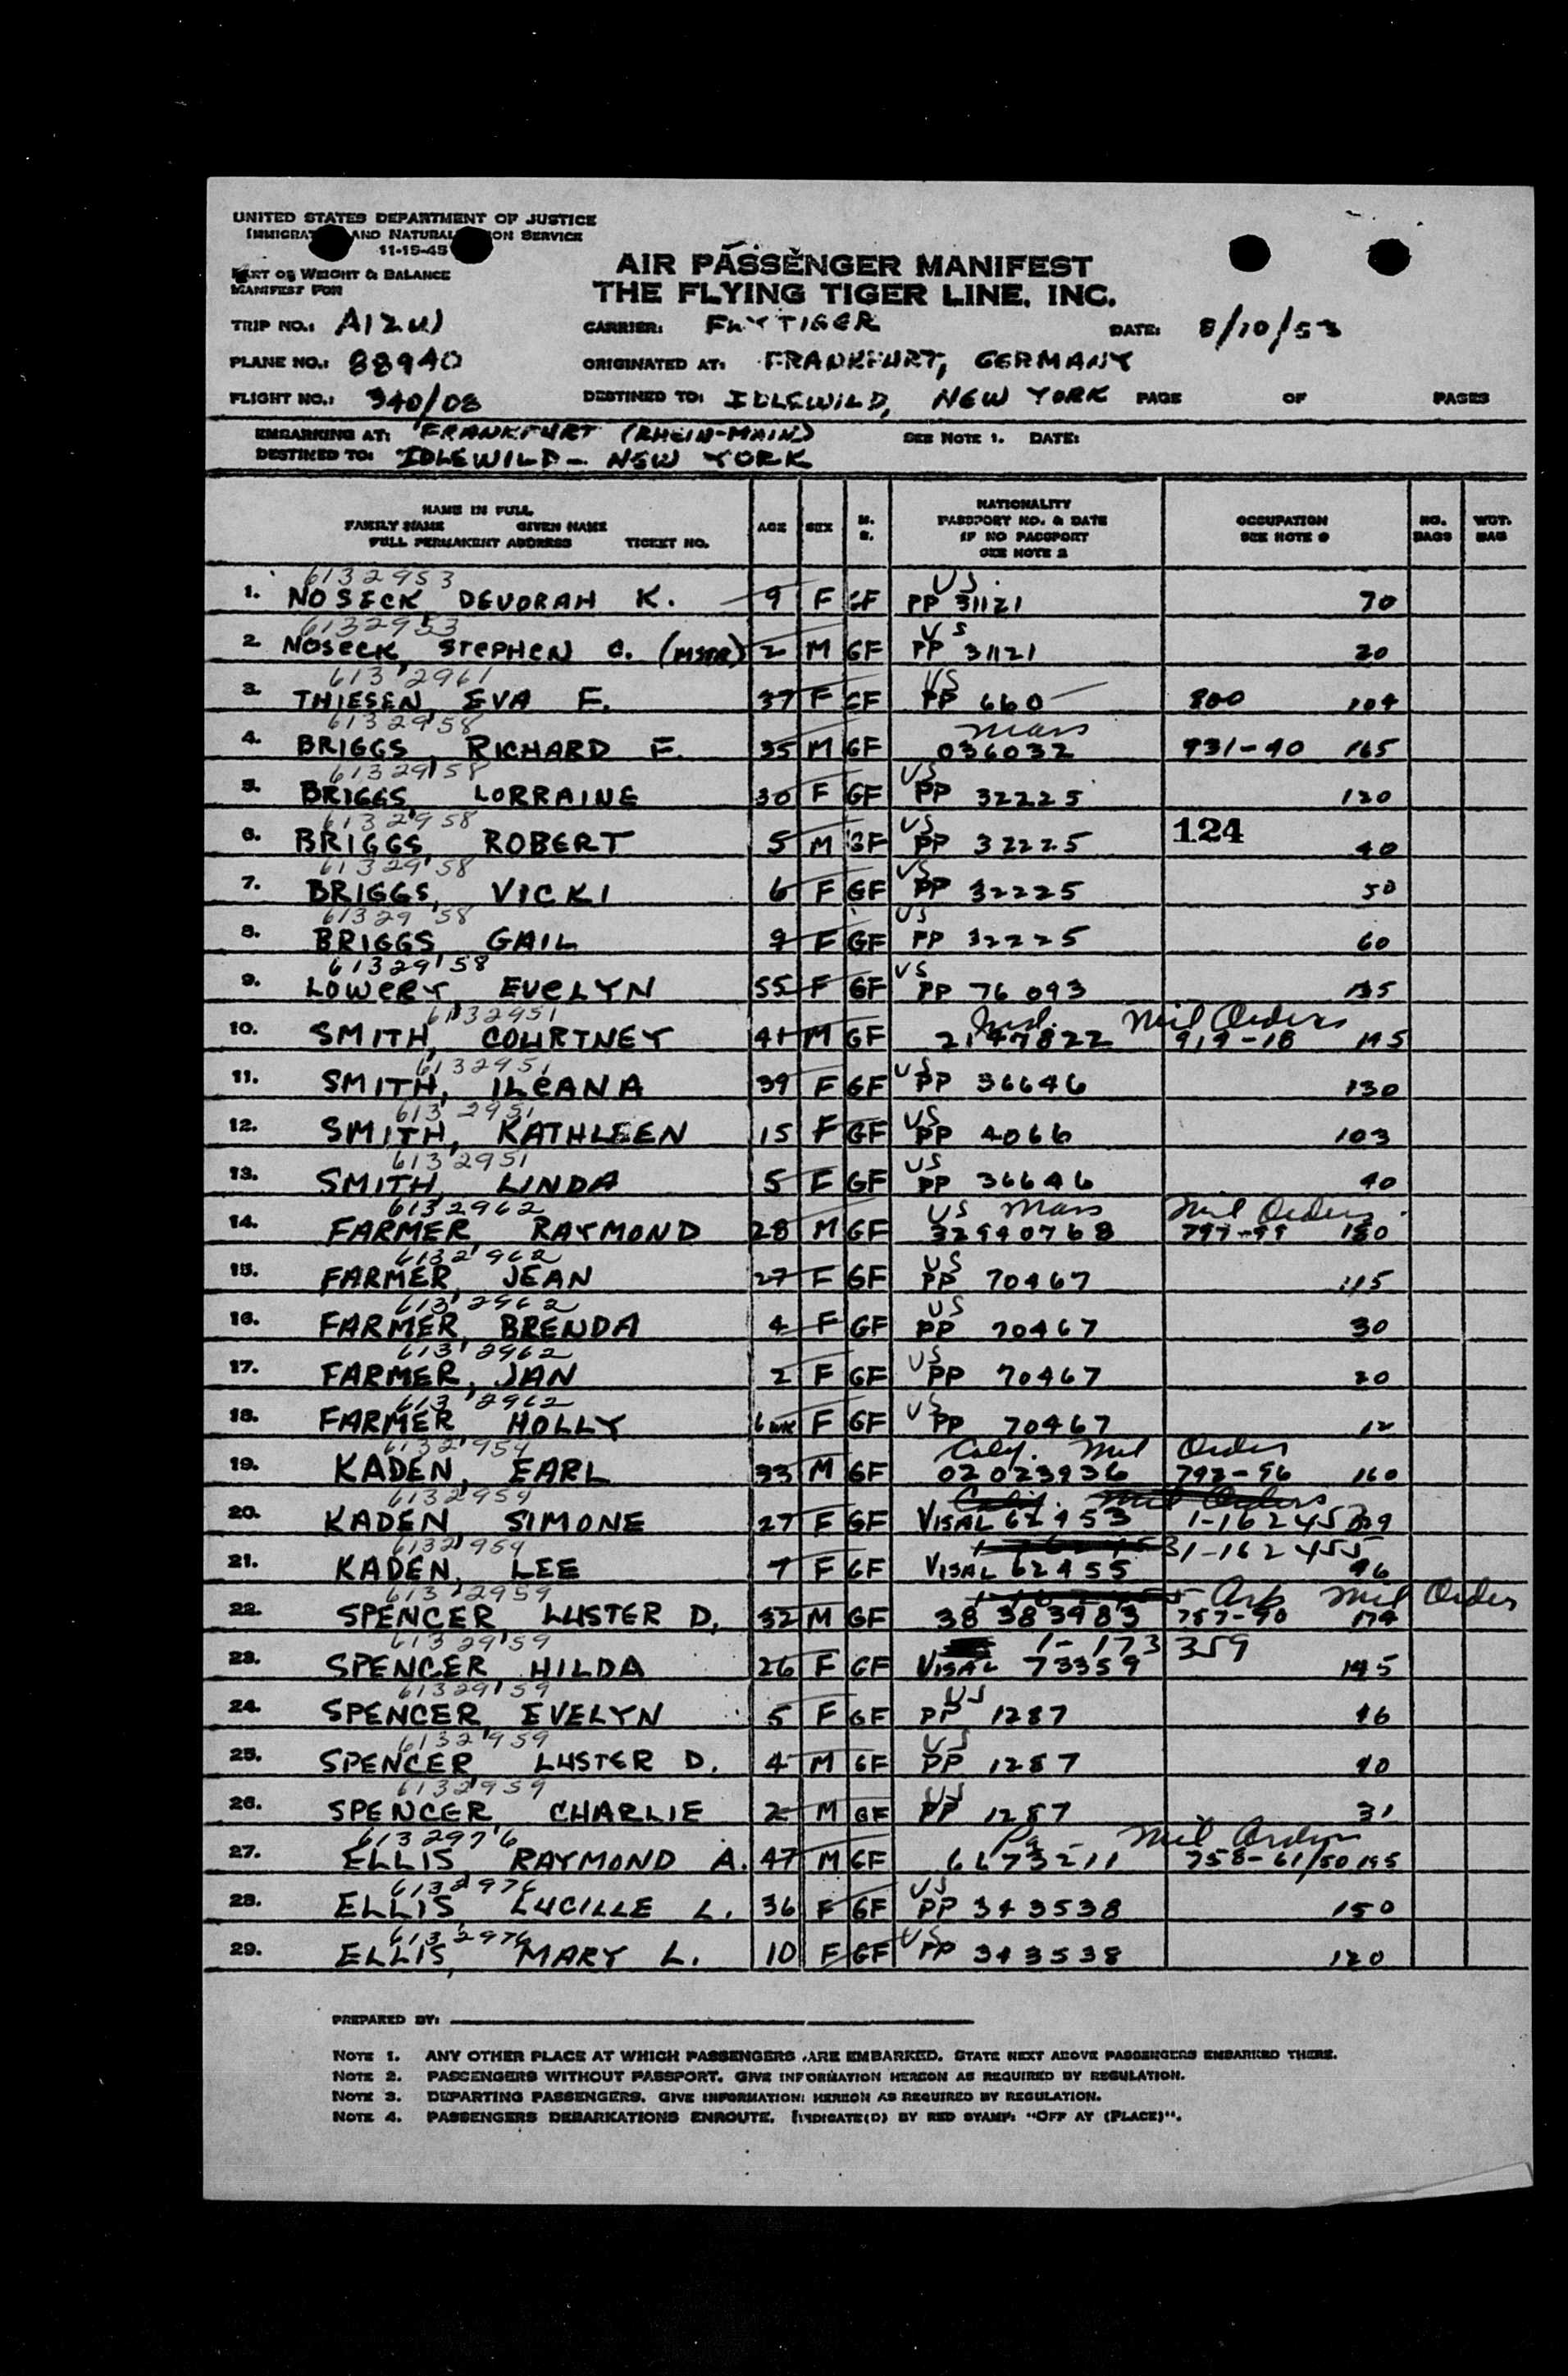 UNITED STATES DEPARTMENT OF JUSTICE
IMMIGRAT AND NATURAL ON SERVICE
11-15-45
PART OF WEIGHT & BALANCE
MANIFEST FOR
AIR PASSENGER MANIFEST
THE FLYING TIGER LINE, INC.
TRIP NO.: CARRIER: FLYTIGER DATE: 8/10/53
PLANE NO.: 88940 ORIGINATED AT: FRANKFURT, GERMANY
FLIGHT NO.: 340/08 DESTINED TO: IDLEWILD, NEW YORK PAGE OF PAGES
EMBARKING AT: FRANKFURT (RHEIN-MAIN) SEE NOTE 1. DATE:
DESTINED TO: IDLEWILD - NEW YORK
NAME IN FULL
FAMILY NAME GIVEN NAME
FULL PERMANENT ADDRESS TICKET NO.
AGE SEX M. S.
NATIONALITY
PASSPORT NO. & DATE
IF NO PASSPORT
SEE NOTE 2
OCCUPATION
SEE NOTE
NO. BAGS
WGT. BAG
6132953 US
1. NOSECK, DEVORAH K. 9 F GF PP 31121 70
6132953 US
2. NOSECK, STEPHEN C. (MSTR) 2 M GF PP 31121 20
6132961 US
3. THIESEN, EVA F. 37 F GF PP 660 800 104
6132958 Mass
4. BRIGGS, RICHARD F. 35 M GF 036032 931-40 165
6132958 US
5. BRIGGS, LORRAINE 30 F GF PP 32225 120
6132958 US
6. BRIGGS, ROBERT 5 M GF PP 32225 124 40
6132958 US
7. BRIGGS, VICKI 6 F GF PP 32225 50
6132958 US
8. BRIGGS GAIL 9 F GF PP 32225 60
6132958 US
9. LOWERY EVELYN 55 F GF PP 76093 135
6132951 Ind. Mil Orders
10. SMITH, COURTNEY 41 M GF 2147822 919-18 195
6132951 US
11. SMITH, ILEANA 39 F GF PP 36646 130
6132951 US
12. SMITH, KATHLEEN 15 F GF PP 4066 103
6132951 US
13. SMITH, LINDA 5 F GF PP 36646 40
6132962 US Mass Mil Orders
14. FARMER, RAYMOND 28 M GF 32940768 797-99 180
6132962 US
15. FARMER, JEAN 27 F GF PP 70467 115
6132962 US
16. FARMER, BRENDA 4 F GF PP 70467 30
6132962 US
17. FARMER, JAN 2 F GF PP 70467 20
6132962 US
18. FARMER HOLLY 6WK F GF PP 70467 12
6132954 Calif. Mil Order
19. KADEN, EARL 33 M GF 02023936 792-96 160
6132959 Calif. Mil Orders
20. KADEN SIMONE 27 F GF VISAL 62453 1-162453
6132954 1-162455
21. KADEN, LEE 7 F GF VISAL 62455 46
6132959 Ark Mil Order
22. SPENCER LUSTER D. 32 M GF 38383983 757-90 174
6132959 1-173359
23. SPENCER HILDA 26 F GF VISAL 73359 145
6132959 US
24. SPENCER, EVELYN 5 F GF PP 1287 46
6132959 US
25. SPENCER LUSTER D. 4 M GF PP 1287 40
6132959 US
26. SPENCER CHARLIE 2 M GF PP 1287 31
6132976 Pa - Mil Orders
27. ELLIS, RAYMOND A. 47 M GF 6673211 758-61/50 195
6132976 US
28. ELLIS LUCILLE L. 36 F GF PP 343538 150
6132976 US
29. ELLIS, MARY L. 10 F GF PP 343538 120
PREPARED BY:
NOTE 1. ANY OTHER PLACE AT WHICH PASSENGERS ARE EMBARKED. STATE NEXT ABOVE PASSENGERS EMBARKED THERE.
NOTE 2. PASSENGERS WITHOUT PASSPORT. GIVE INFORMATION HEREON AS REQUIRED BY REGULATION.
NOTE 3. DEPARTING PASSENGERS. GIVE INFORMATION HEREON AS REQUIRED BY REGULATION.
NOTE 4. PASSENGERS DEBARKATIONS ENROUTE. INDICATE(D) BY RED STAMP: "OFF AT (PLACE)".